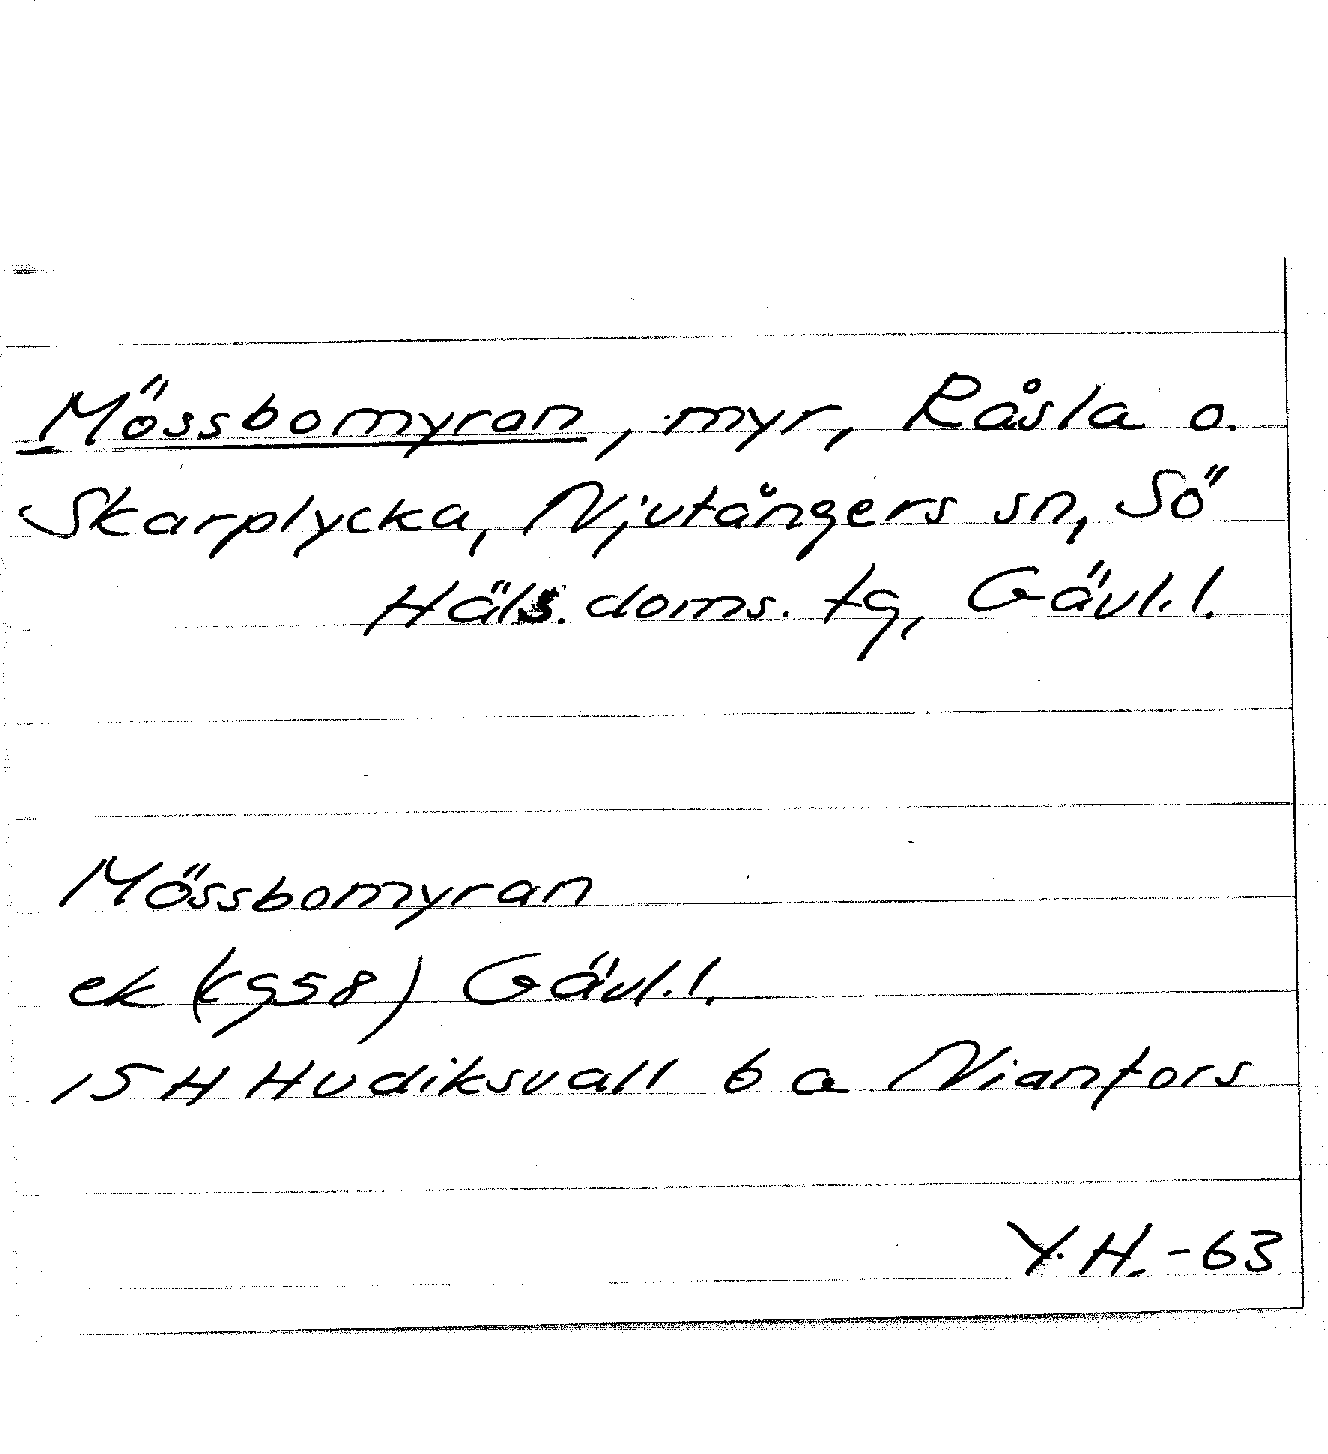 Mössbomyran, myr, Råsla o.
Skarplycka, Njutångers sn, Sö
Häls. doms. tg, Gävl. l.
Mössbomyran
ek (1958) Gävl. l.
15 H Hudiksvall 6 a Nianfors
Y. H. -63